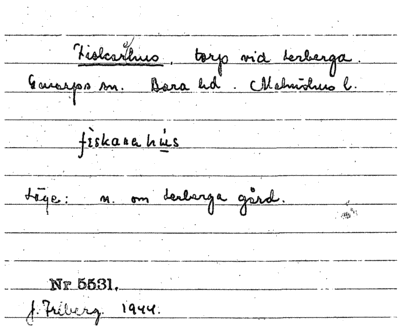 Fiskarhus, torp vid Lerberga.
Gnarps sn. Bara hd. Malmöhus l.
fiskarahús
Läge: n. om Lerberga gård.
Nr 5531.
J. Friberg. 1944.